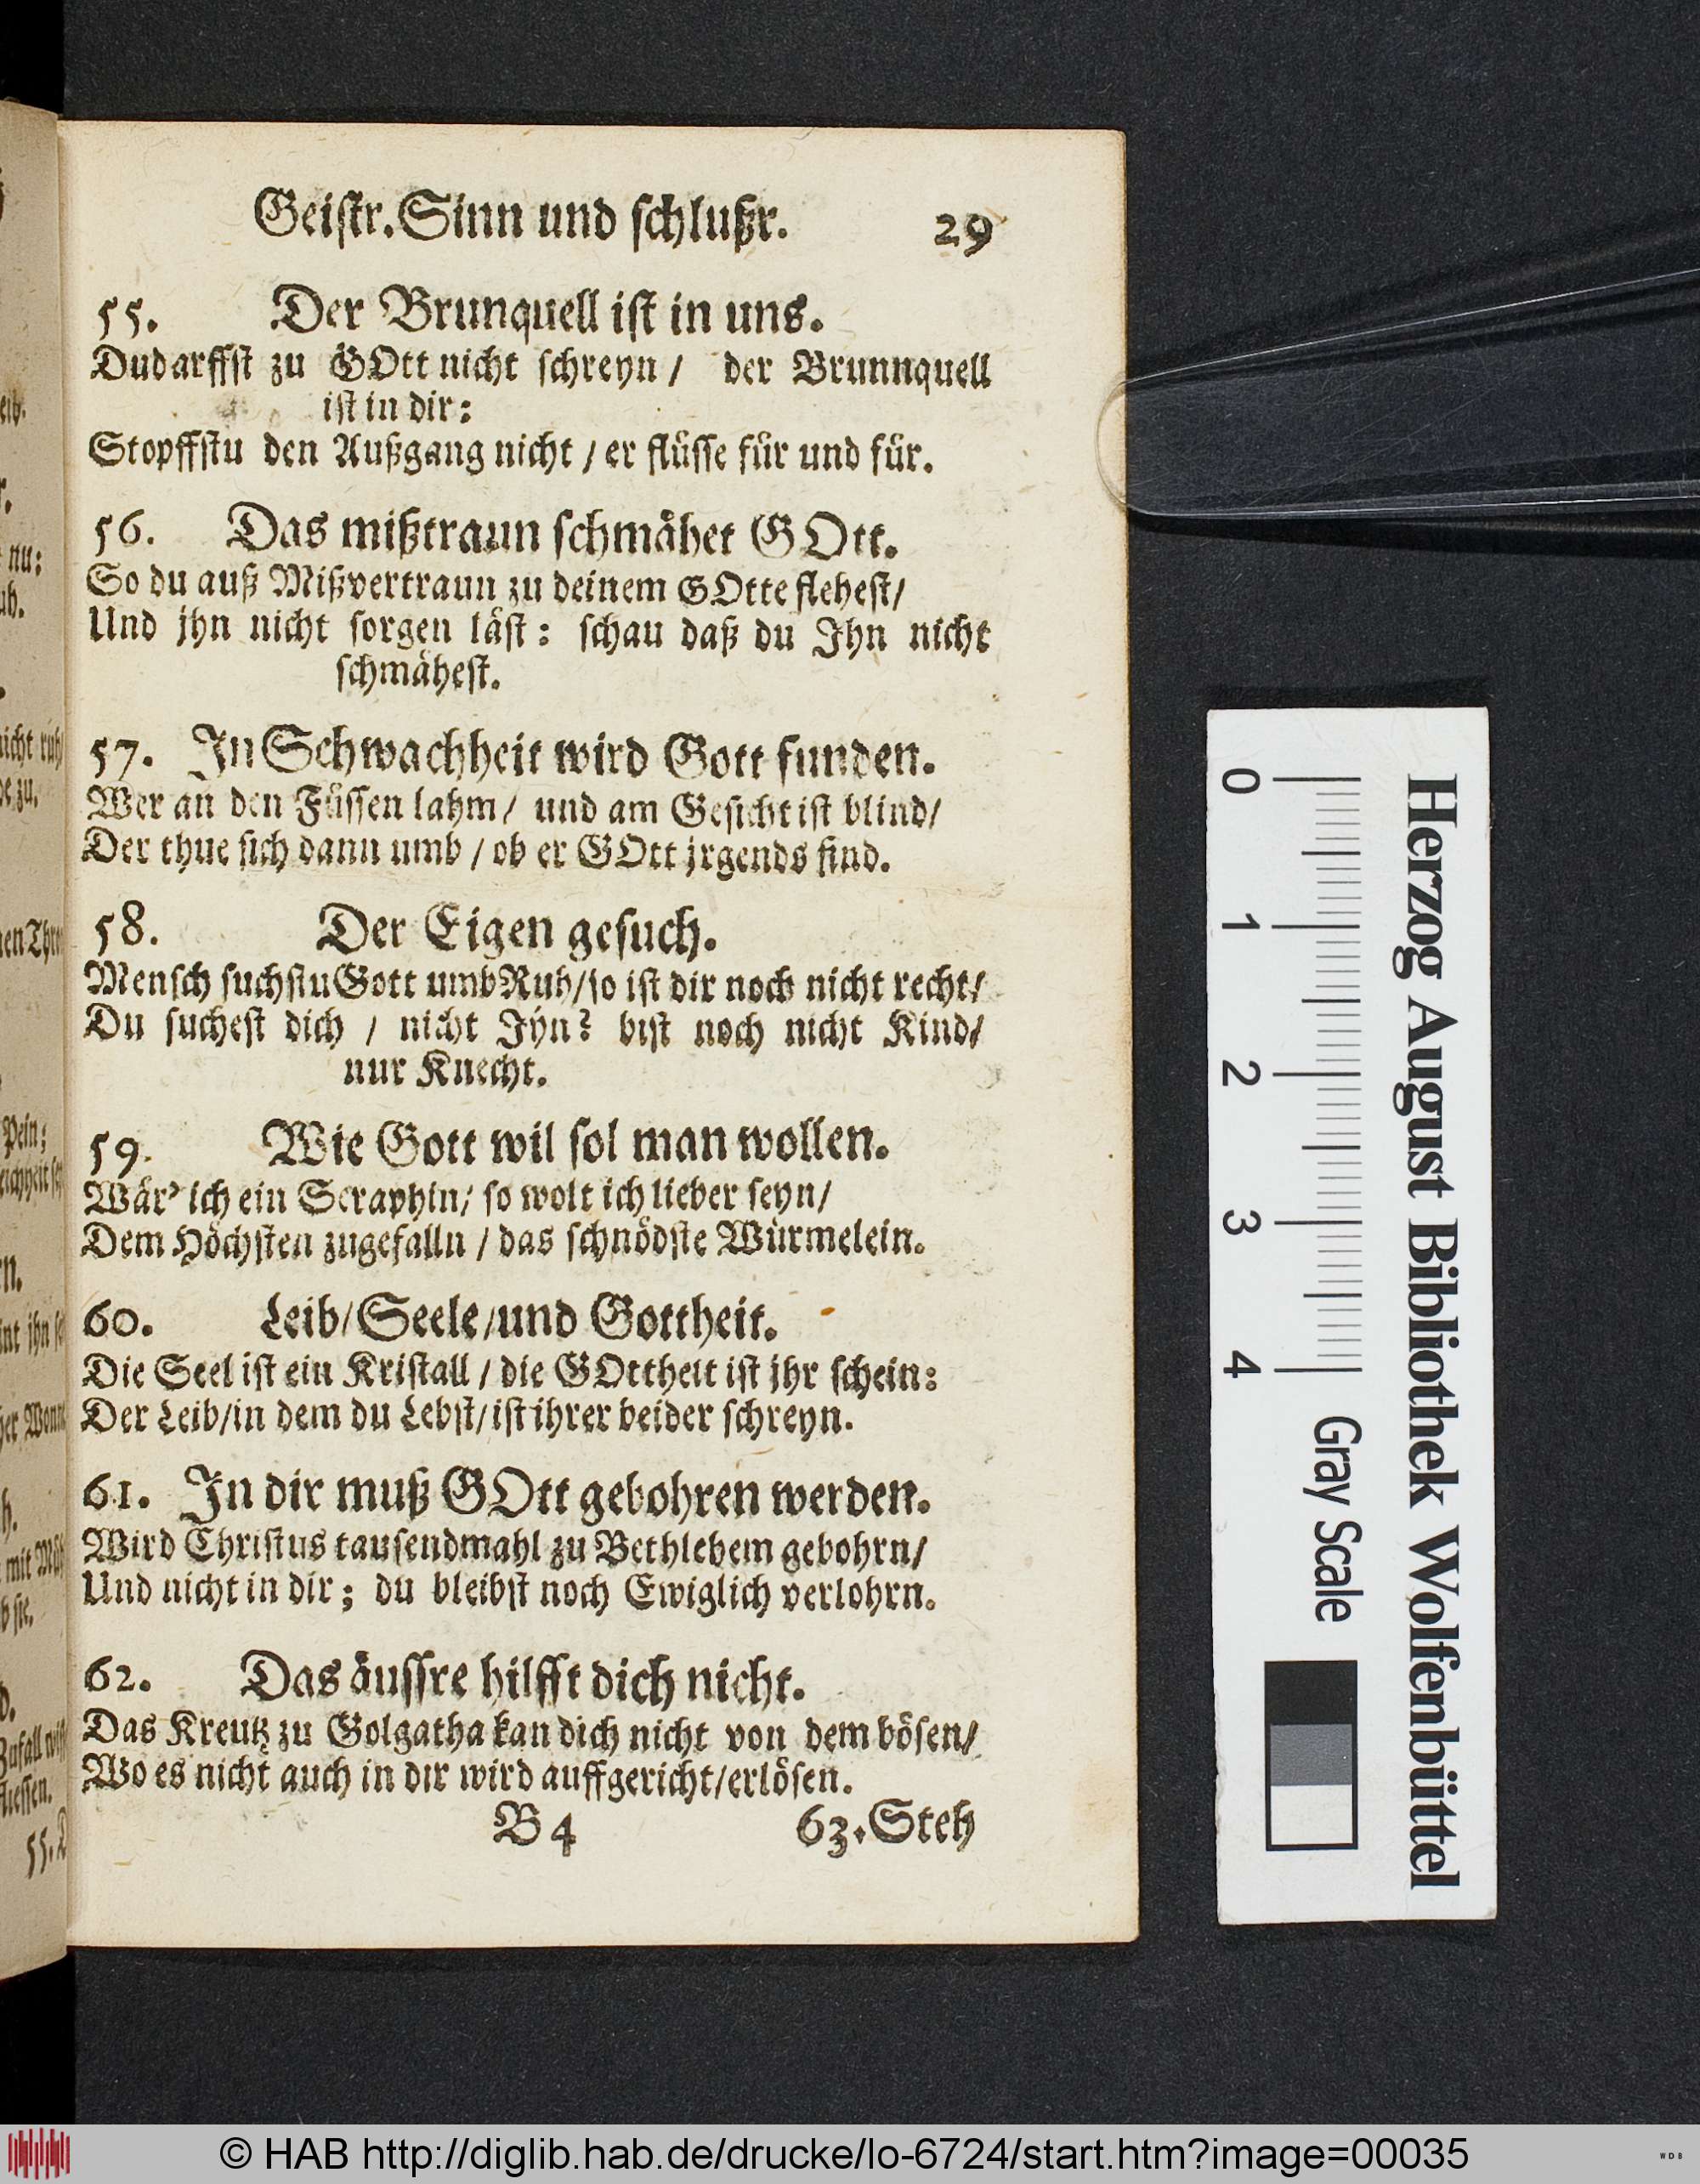 Geiſtr. Sinn und ſchlußr. 29
55. Der Brunquell iſt in uns.
Dudarffſt zu GOtt nicht ſchreyn / der Brunnquell
iſt in dir:
Stopffſtu den Außgang nicht / er flüſſe für und für.
56. Das mißtraun ſchmähet GOtt.
So du auß Mißvertraun zu deinem GOtte fleheſt/
Und jhn nicht ſorgen läſt: ſchau daß du Ihn nicht
ſchmäheſt.
57. In Schwachheit wird Gott funden.
Wer an den Füſſen lahm / und am Geſicht iſt blind/
Der thue ſich dann umb / ob er GOtt jrgends find.
58. Der Eigen geſuch.
Menſch ſuchſtu Gott umb Ruh/ ſo iſt dir noch nicht recht/
Du ſucheſt dich / nicht Ihn? biſt noch nicht Kind/
nur Knecht.
59. Wie Gott wil ſol man wollen.
Wär' ich ein Seraphin/ ſo wolt ich lieber ſeyn/
Dem Höchſten zugefalln / das ſchnödſte Würmelein.
60. Leib/ Seele/ und Gottheit.
Die Seel iſt ein Kriſtall / die GOttheit iſt jhr ſchein:
Der Leib/ in dem du Lebſt/ iſt ihrer beider ſchreyn.
61. In dir muß GOtt gebohren werden.
Wird Chriſtus tauſendmahl zu Bethlehem gebohrn/
Und nicht in dir; du bleibſt noch Ewiglich verlohrn.
62. Das äuſſre hilfft dich nicht.
Das Kreutz zu Golgatha kan dich nicht von dem böſen/
Wo es nicht auch in dir wird auffgericht/ erlöſen.
B 4 63. Steh
nu:
nicht
Pein;
55.
Herzog August Bibliothek Wolfenbüttel
0 1 2 3 4 Gray Scale
© HAB http://diglib.hab.de/drucke/lo-6724/start.htm?image=00035
WDB